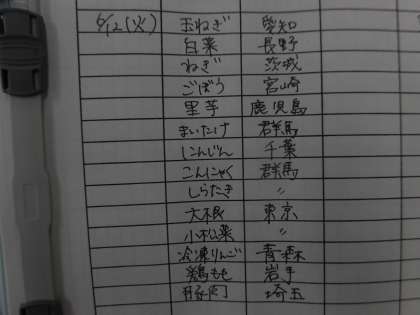 6/12(火) 玉ねぎ 愛知
白菜 長野
ねぎ 茨城
ごぼう 宮崎
里芋 鹿児島
まいたけ 群馬
にんじん 千葉
こんにゃく 群馬
しらたき 〃
大根 東京
小松菜 〃
冷凍りんご 青森
鶏もも 岩手
豚肉 埼玉